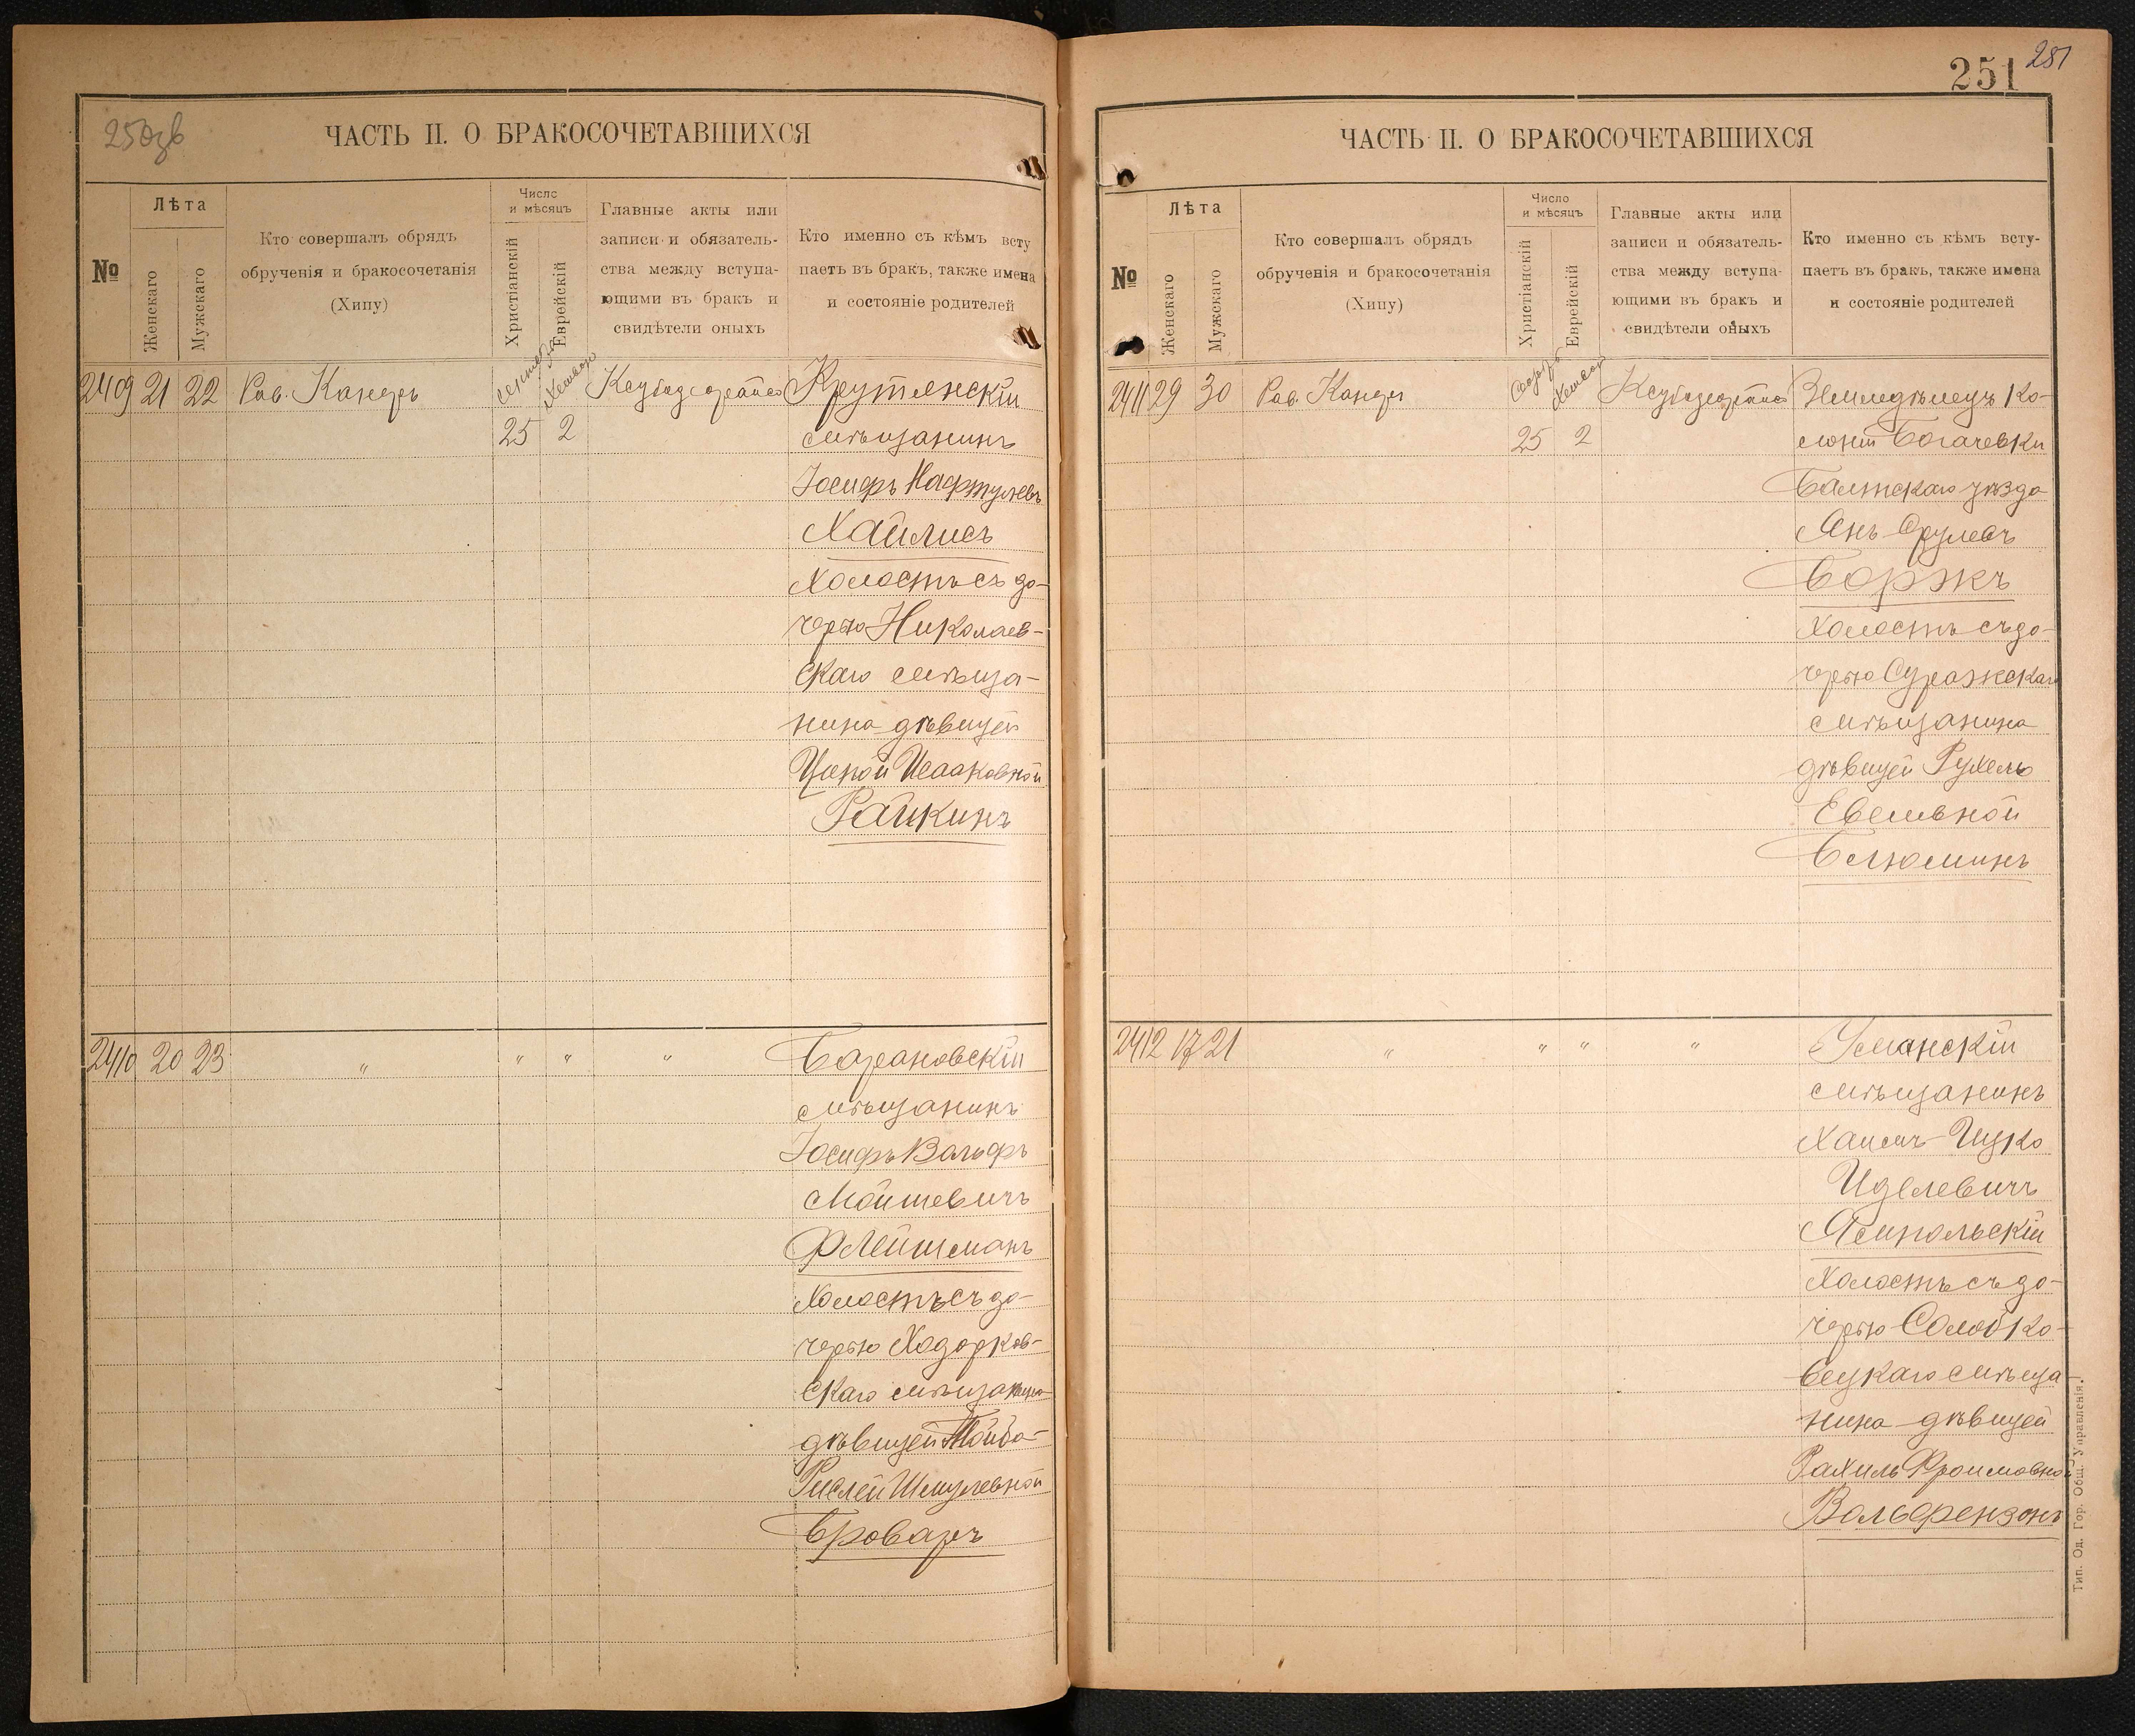 250 об
ЧАСТЬ II. О БРАКОСОЧЕТАВШИХСЯ
№
Лѣта
Женскаго
Мужскаго
Кто совершалъ обрядъ
обрученія и бракосочетанія
(Хипу)
Число
и мѣсяцъ
Христіанскій
Еврейскій
Главные акты или
записи и обязатель-
ства между вступа-
ющими въ бракъ и
свидѣтели оныхъ
Кто именно съ кѣмъ всту
паетъ въ бракъ, также имена
и состояніе родителей
2409 21 22 Рав. Канеръ 25 2
Крутянскій
мѣщанинъ
Іосифъ Нафтулевъ
Хайлисъ
холостъ съ до-
черью Николаев-
скаго мѣща-
нина дѣвицей
Ципой Исааковной
Райкинъ
2410 20 23 " " " "
Барановскій
мѣщанинъ
Іосифъ Вольфъ
Мойшевичъ
Флейшманъ
холостъ съ до-
черью Ходорков-
скаго мѣщанина
дѣвицей Тойба-
Рислей Шмулевной
Броваръ
251
251
ЧАСТЬ II. О БРАКОСОЧЕТАВШИХСЯ
№
Лѣта
Женскаго
Мужскаго
Кто совершалъ обрядъ
обрученія и бракосочетанія
(Хипу)
Число
и мѣсяцъ
Христіанскій
Еврейскій
Главные акты или
записи и обязатель-
ства между вступа-
ющими въ бракъ и
свидѣтели оныхъ
Кто именно съ кѣмъ всту-
паетъ въ бракъ, также имена
и состояніе родителей
2411 29 30 Рав. Канеръ 25 2
Земледѣлецъ ко-
лоніи Богачевки
Балтскаго уѣзда
Янъ Срулевъ
Боржъ
холостъ съ до-
черью Суражскаго
мѣщанина
дѣвицей Рухелью
Евелевной
Блюминъ
2412 17 21 " " " "
Уманскій
мѣщанинъ
Хаимъ-Ицко
Иделевичъ
Ямпольскій
холостъ съ до-
черью Солобко-
вецкаго мѣща
нина дѣвицей
Рахиль Фроимовной
Вольфензонъ
Тип. Од. Гор. Общ. Управленія.